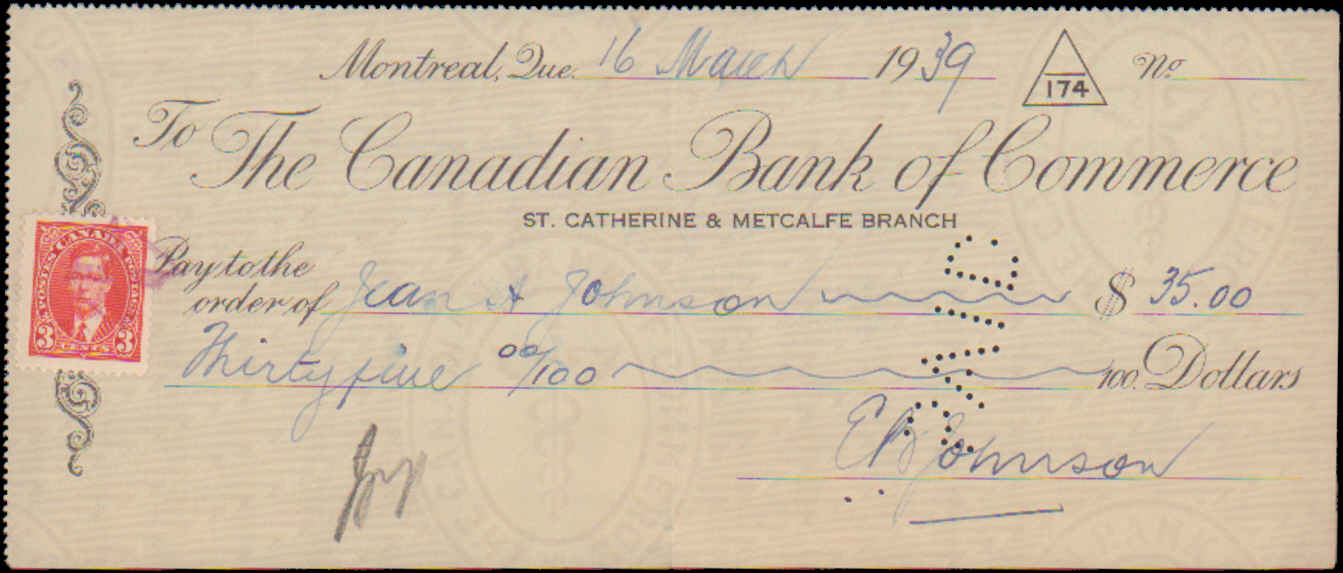 Montreal, Que. 16 March 1939 174 No
To The Canadian Bank of Commerce
ST. CATHERINE & METCALFE BRANCH
POSTES CANADA POSTAGE
3 CENTS 3
Pay to the
order of Jean A Johnson $ 35.00
Thirty five 00/100 100 Dollars
E B Johnson